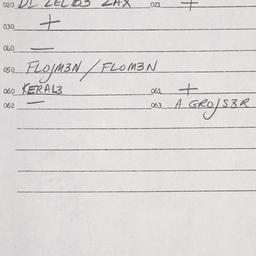 020 DL ZELB3 ZAX 021 +
030 +
040 —
050 FLOJM3N / FLOM3N
060 KERAL3 061 +
062 — 063 A GROJS3R